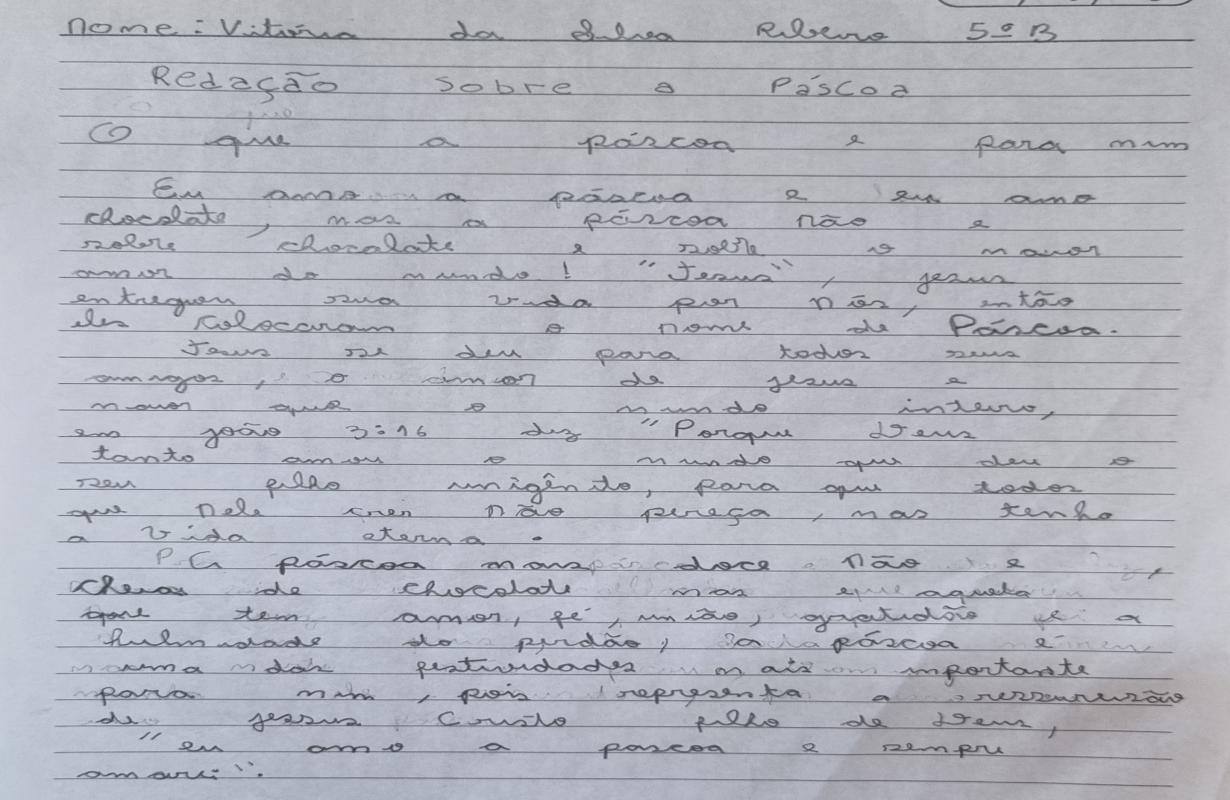 Nome: Vitória da Silva Ribeiro 5º B
Redação sobre a Páscoa
O que a páscoa e para mim
Eu amo a páscoa e eu amo
chocolate, mas a páscoa não e
sobre chocolate e sobre o maior
amor do mundo! "Jesus", jesus
entregou sua vida por nós, então
eles colocaram o nome de Páscoa.
Jesus se deu para todos seus
amigos, o amor de jesus e
maior que o mundo inteiro,
em joão 3:16 diz "Porque Deus
tanto amou o mundo que deu o
seu filho unigênito, para que todos
que nele crer não pereça, mas tenho
a vida eterna.
A páscoa mais doce não e
cheia de chocolate mas aquela
que tem amor, fé, união, gratidão e a
humildade do perdão, a páscoa é
uma das festividades mais importante
para mim, pois representa a ressureisão
de jessus Cristo filho de Deus,
"eu amo a pascoa e sempre
amarei".